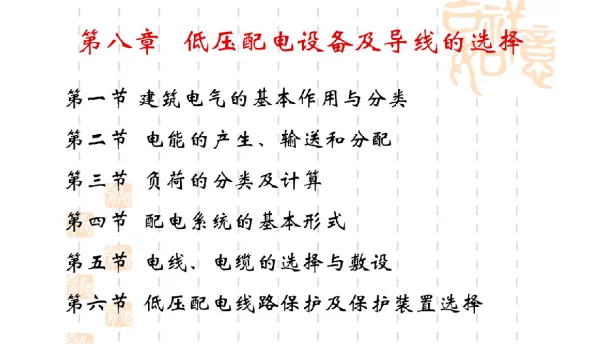 第八章 低压配电设备及导线的选择
第一节 建筑电气的基本作用与分类
第二节 电能的产生、输送和分配
第三节 负荷的分类及计算
第四节 配电系统的基本形式
第五节 电线、电缆的选择与敷设
第六节 低压配电线路保护及保护装置选择